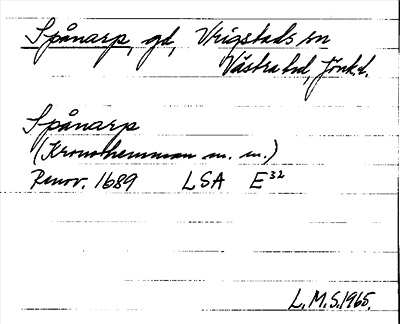 Spånarp, gd, Vrigstads sn
Västra hd, Jönk.l.
Spånarp
(Kronohemman m. m.)
Renov. 1689 LSA E32
L.M.S. 1965.